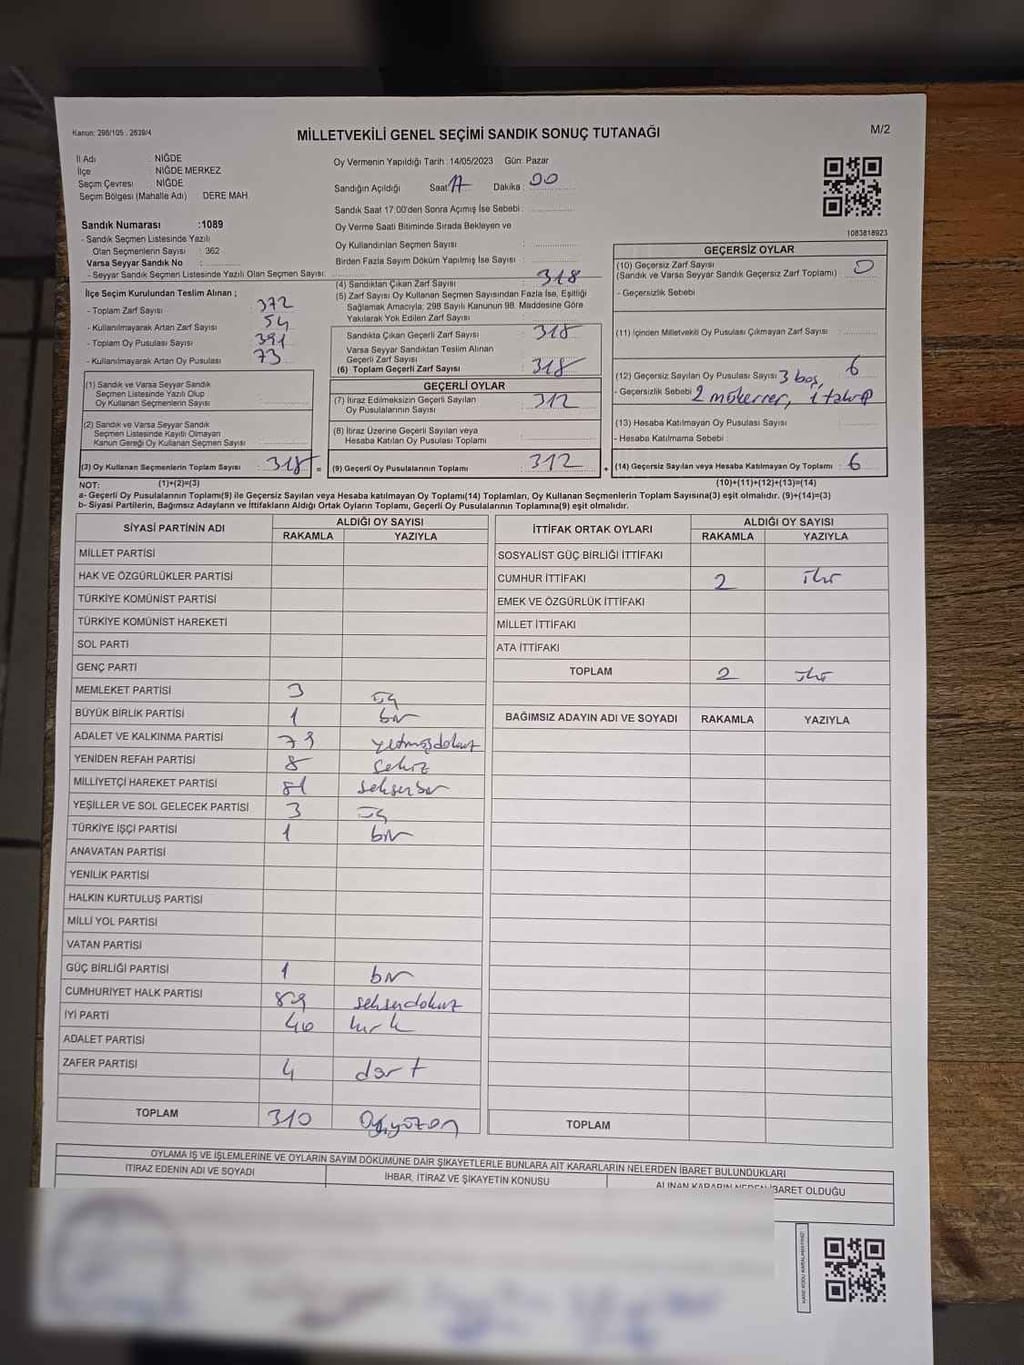 Kanun: 298/105 , 2839/4
MİLLETVEKİLİ GENEL SEÇİMİ SANDIK SONUÇ TUTANAĞI
M/2
İl Adı NİĞDE
İlçe NİĞDE MERKEZ
Seçim Çevresi NİĞDE
Seçim Bölgesi (Mahalle Adı) DERE MAH
Oy Vermenin Yapıldığı Tarih : 14/05/2023 Gün: Pazar
Sandığın Açıldığı Saat 17 Dakika : 00
Sandık Saat 17:00'den Sonra Açılmış İse Sebebi :
Oy Verme Saati Bitiminde Sırada Bekleyen ve
Oy Kullandırılan Seçmen Sayısı :
Birden Fazla Sayım Döküm Yapılmış İse Sayısı :
1083818923
Sandık Numarası :1089
- Sandık Seçmen Listesinde Yazılı
Olan Seçmenlerin Sayısı : 362
Varsa Seyyar Sandık No :
- Seyyar Sandık Seçmen Listesinde Yazılı Olan Seçmen Sayısı:
İlçe Seçim Kurulundan Teslim Alınan ;
- Toplam Zarf Sayısı : 372
- Kullanılmayarak Artan Zarf Sayısı : 54
- Toplam Oy Pusulası Sayısı : 391
- Kullanılmayarak Artan Oy Pusulası : 73
(1) Sandık ve Varsa Seyyar Sandık
Seçmen Listesinde Yazılı Olup
Oy Kullanan Seçmenlerin Sayısı :
(2) Sandık ve Varsa Seyyar Sandık
Seçmen Listesinde Kayıtlı Olmayan
Kanun Gereği Oy Kullanan Seçmen Sayısı :
(3) Oy Kullanan Seçmenlerin Toplam Sayısı : 318 =
(1)+(2)=(3)
(4) Sandıktan Çıkan Zarf Sayısı : 318
(5) Zarf Sayısı Oy Kullanan Seçmen Sayısından Fazla İse, Eşitliği
Sağlamak Amacıyla; 298 Sayılı Kanunun 98. Maddesine Göre
Yakılarak Yok Edilen Zarf Sayısı :
Sandıkta Çıkan Geçerli Zarf Sayısı : 318
Varsa Seyyar Sandıktan Teslim Alınan
Geçerli Zarf Sayısı :
(6) Toplam Geçerli Zarf Sayısı : 318
GEÇERLİ OYLAR
(7) İtiraz Edilmeksizin Geçerli Sayılan
Oy Pusulalarının Sayısı : 312
(8) İtiraz Üzerine Geçerli Sayılan veya
Hesaba Katılan Oy Pusulası Toplamı :
(9) Geçerli Oy Pusulalarının Toplamı : 312 +
GEÇERSİZ OYLAR
(10) Geçersiz Zarf Sayısı
(Sandık ve Varsa Seyyar Sandık Geçersiz Zarf Toplamı) : 0
- Geçersizlik Sebebi :
(11) İçinden Milletvekili Oy Pusulası Çıkmayan Zarf Sayısı :
(12) Geçersiz Sayılan Oy Pusulası Sayısı : 3 boş, 6
- Geçersizlik Sebebi : 2 mükerrer, 1 tahrip
(13) Hesaba Katılmayan Oy Pusulası Sayısı :
- Hesaba Katılmama Sebebi :
(14) Geçersiz Sayılan veya Hesaba Katılmayan Oy Toplamı : 6
(10)+(11)+(12)+(13)=(14)
NOT:
a- Geçerli Oy Pusulalarının Toplamı(9) ile Geçersiz Sayılan veya Hesaba katılmayan Oy Toplamı(14) Toplamları, Oy Kullanan Seçmenlerin Toplam Sayısına(3) eşit olmalıdır. (9)+(14)=(3)
b- Siyasi Partilerin, Bağımsız Adayların ve İttifakların Aldığı Ortak Oyların Toplamı, Geçerli Oy Pusulalarının Toplamına(9) eşit olmalıdır.
SİYASİ PARTİNİN ADI ALDIĞI OY SAYISI
RAKAMLA YAZIYLA
MİLLET PARTİSİ
HAK VE ÖZGÜRLÜKLER PARTİSİ
TÜRKİYE KOMÜNİST PARTİSİ
TÜRKİYE KOMÜNİST HAREKETİ
SOL PARTİ
GENÇ PARTİ
MEMLEKET PARTİSİ 3 üç
BÜYÜK BİRLİK PARTİSİ 1 bir
ADALET VE KALKINMA PARTİSİ 79 yetmişdokuz
YENİDEN REFAH PARTİSİ 8 sekiz
MİLLİYETÇİ HAREKET PARTİSİ 81 seksenbir
YEŞİLLER VE SOL GELECEK PARTİSİ 3 üç
TÜRKİYE İŞÇİ PARTİSİ 1 bir
ANAVATAN PARTİSİ
YENİLİK PARTİSİ
HALKIN KURTULUŞ PARTİSİ
MİLLİ YOL PARTİSİ
VATAN PARTİSİ
GÜÇ BİRLİĞİ PARTİSİ 1 bir
CUMHURİYET HALK PARTİSİ 89 seksendokuz
İYİ PARTİ 40 kırk
ADALET PARTİSİ
ZAFER PARTİSİ 4 dört
TOPLAM 310 Üçyüzon
İTTİFAK ORTAK OYLARI ALDIĞI OY SAYISI
RAKAMLA YAZIYLA
SOSYALİST GÜÇ BİRLİĞİ İTTİFAKI
CUMHUR İTTİFAKI 2 iki
EMEK VE ÖZGÜRLÜK İTTİFAKI
MİLLET İTTİFAKI
ATA İTTİFAKI
TOPLAM 2 iki
BAĞIMSIZ ADAYIN ADI VE SOYADI RAKAMLA YAZIYLA
TOPLAM
OYLAMA İŞ VE İŞLEMLERİNE VE OYLARIN SAYIM DÖKÜMÜNE DAİR ŞİKAYETLERLE BUNLARA AİT KARARLARIN NELERDEN İBARET BULUNDUKLARI
İTİRAZ EDENİN ADI VE SOYADI İHBAR, İTİRAZ VE ŞİKAYETİN KONUSU ALINAN KARARIN NEDEN İBARET OLDUĞU